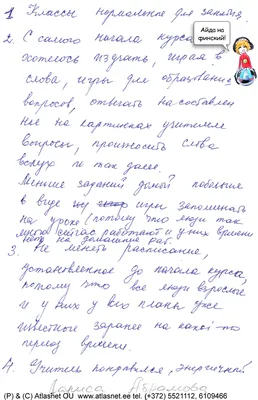 1 Классы нормальные для занятия.
Айда на
финский!
2. С самого начала курса
хотелось играть, играя в
слова, игры для образования
вопросов, отвечать на составлен
ные на картинках учителем
вопросы, произносить слова
вслух и так далее.
Меньше заданий домой побольше
в виде игры запоминать
на уроке (потому что люди так
много сейчас работают и у них времени
нет на домашние раб.
3. Не менять расписание,
установленное до начала курса,
потому что все люди взрослые
и у них у всех планы уже
известные заранее на какой-то
период времени.
4. Учитель понравился, энергичный
Лариса Абрамова
(P) & (C) Atlasnet OU www.atlasnet.ee tel. (+372) 5521112, 6109466